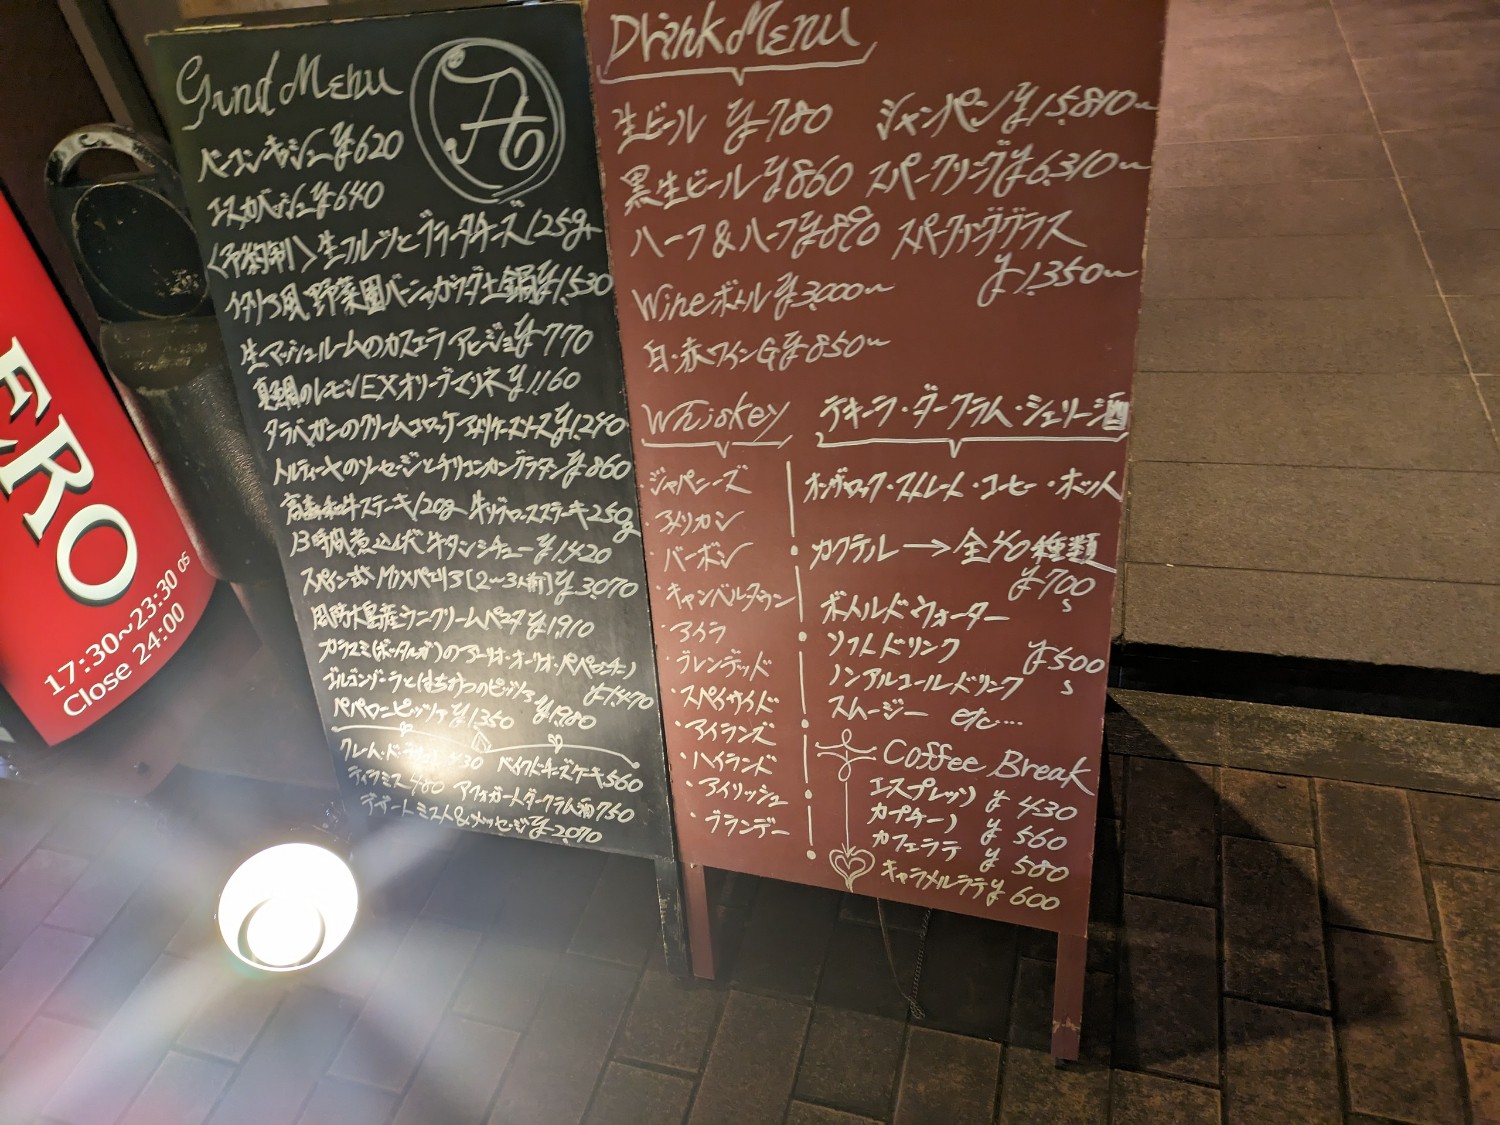 Grand Menu
ベーコンキッシュ ¥620
エスカベッシュ ¥640
〈予約制〉生フルーツとブラータチーズ125g
イタリア風 野菜園バーニャカウダ土鍋 ¥1,530
生マッシュルームのカスエラ アヒージョ ¥770
真鯛のレモンEXオリーブマリネ ¥1,160
タラバガニのクリームコロッケ アメリケーヌソース ¥1,240
トルティーヤのソーセージとチリコンカングラタン ¥860
牛ステーキ120g 牛リブロースステーキ250g
13時間煮込んだ牛タンシチュー ¥1,420
スペイン式 MIXパエリア[2〜3人前] ¥3,070
島産ウニクリームペスタ ¥1,910
カラスミ(ボッタルガ)のアーリオ・オーリオ・ペペロンチーノ
¥1,470
ゴルゴンゾーラとはちみつのピッツァ ¥1,980
ペパロニピッツァ ¥1,350
クレーム・ド・ 430 ベイクドチーズケーキ 560
ティラミス 480 アフォガートダークラム酒 750
デザートミスト&メッセージ ¥2,070
Drink Menu
生ビール ¥780
黒生ビール ¥860
ハーフ&ハーフ ¥890
Wine ボトル ¥3,000〜
白・赤ワイン G ¥850〜
シャンパン ¥15,810〜
スパークリング ¥6,310〜
スパークリンググラス
¥1,350〜
Whiskey
・ジャパニーズ
・アメリカン
・バーボン
・キャンベルタウン
・アイラ
・ブレンデッド
・スペイサイド
・アイランズ
・ハイランド
・アイリッシュ
・ブランデー
テキーラ・ダークラム・シェリー酒
オンザロック・ストレート・コーヒー・ホット
カクテル → 全40種類
¥700
s
ボトルドウォーター
ソフトドリンク
¥500
s
ノンアルコールドリンク
スムージー etc…
Coffee Break
エスプレッソ ¥430
カプチーノ ¥560
カフェラテ ¥580
キャラメルラテ ¥600
ERO
17:30〜23:30 OS
Close 24:00